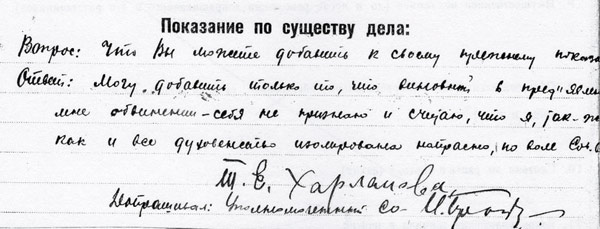 Показание по существу дела:
Вопрос: Что Вы можете добавить к своему прежнему показа
Ответ: Могу добавить только то, что виновной в пред"явлен
мне обвинении - себя не признаю и считаю, что я, так-же
как и все духовенство изолирована напрасно, по воле Сов.
Т. Е. Харламова.
Допрашивал: Уполномоченный СО